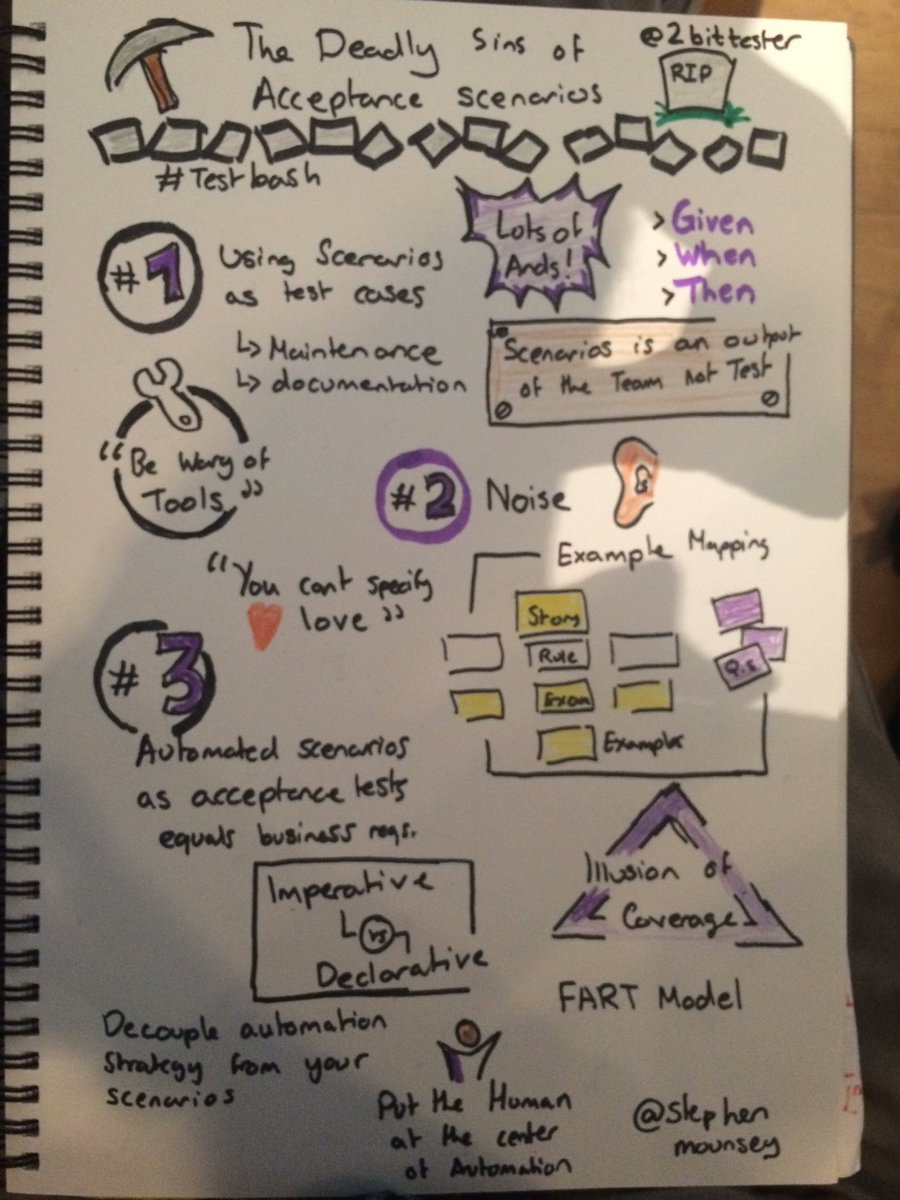 The Deadly Sins of
Acceptance scenarios
@2bittester
RIP
#Testbash
#1
Using Scenarios
as test cases
↳ Maintenance
↳ documentation
Lots of
Ands!
> Given
> When
> Then
Scenarios is an output
of the Team not Test
“Be Wary of
Tools”
#2 Noise
“You cant specify
love”
Example Mapping
Story
Rule
Exam
Examples
Q.s
#3
Automated scenarios
as acceptance tests
equals business reqs.
Imperative
vs
Declarative
Illusion of
Coverage
FART Model
Decouple automation
strategy from your
scenarios
Put the Human
at the center
of Automation
@Stephen
mounsey